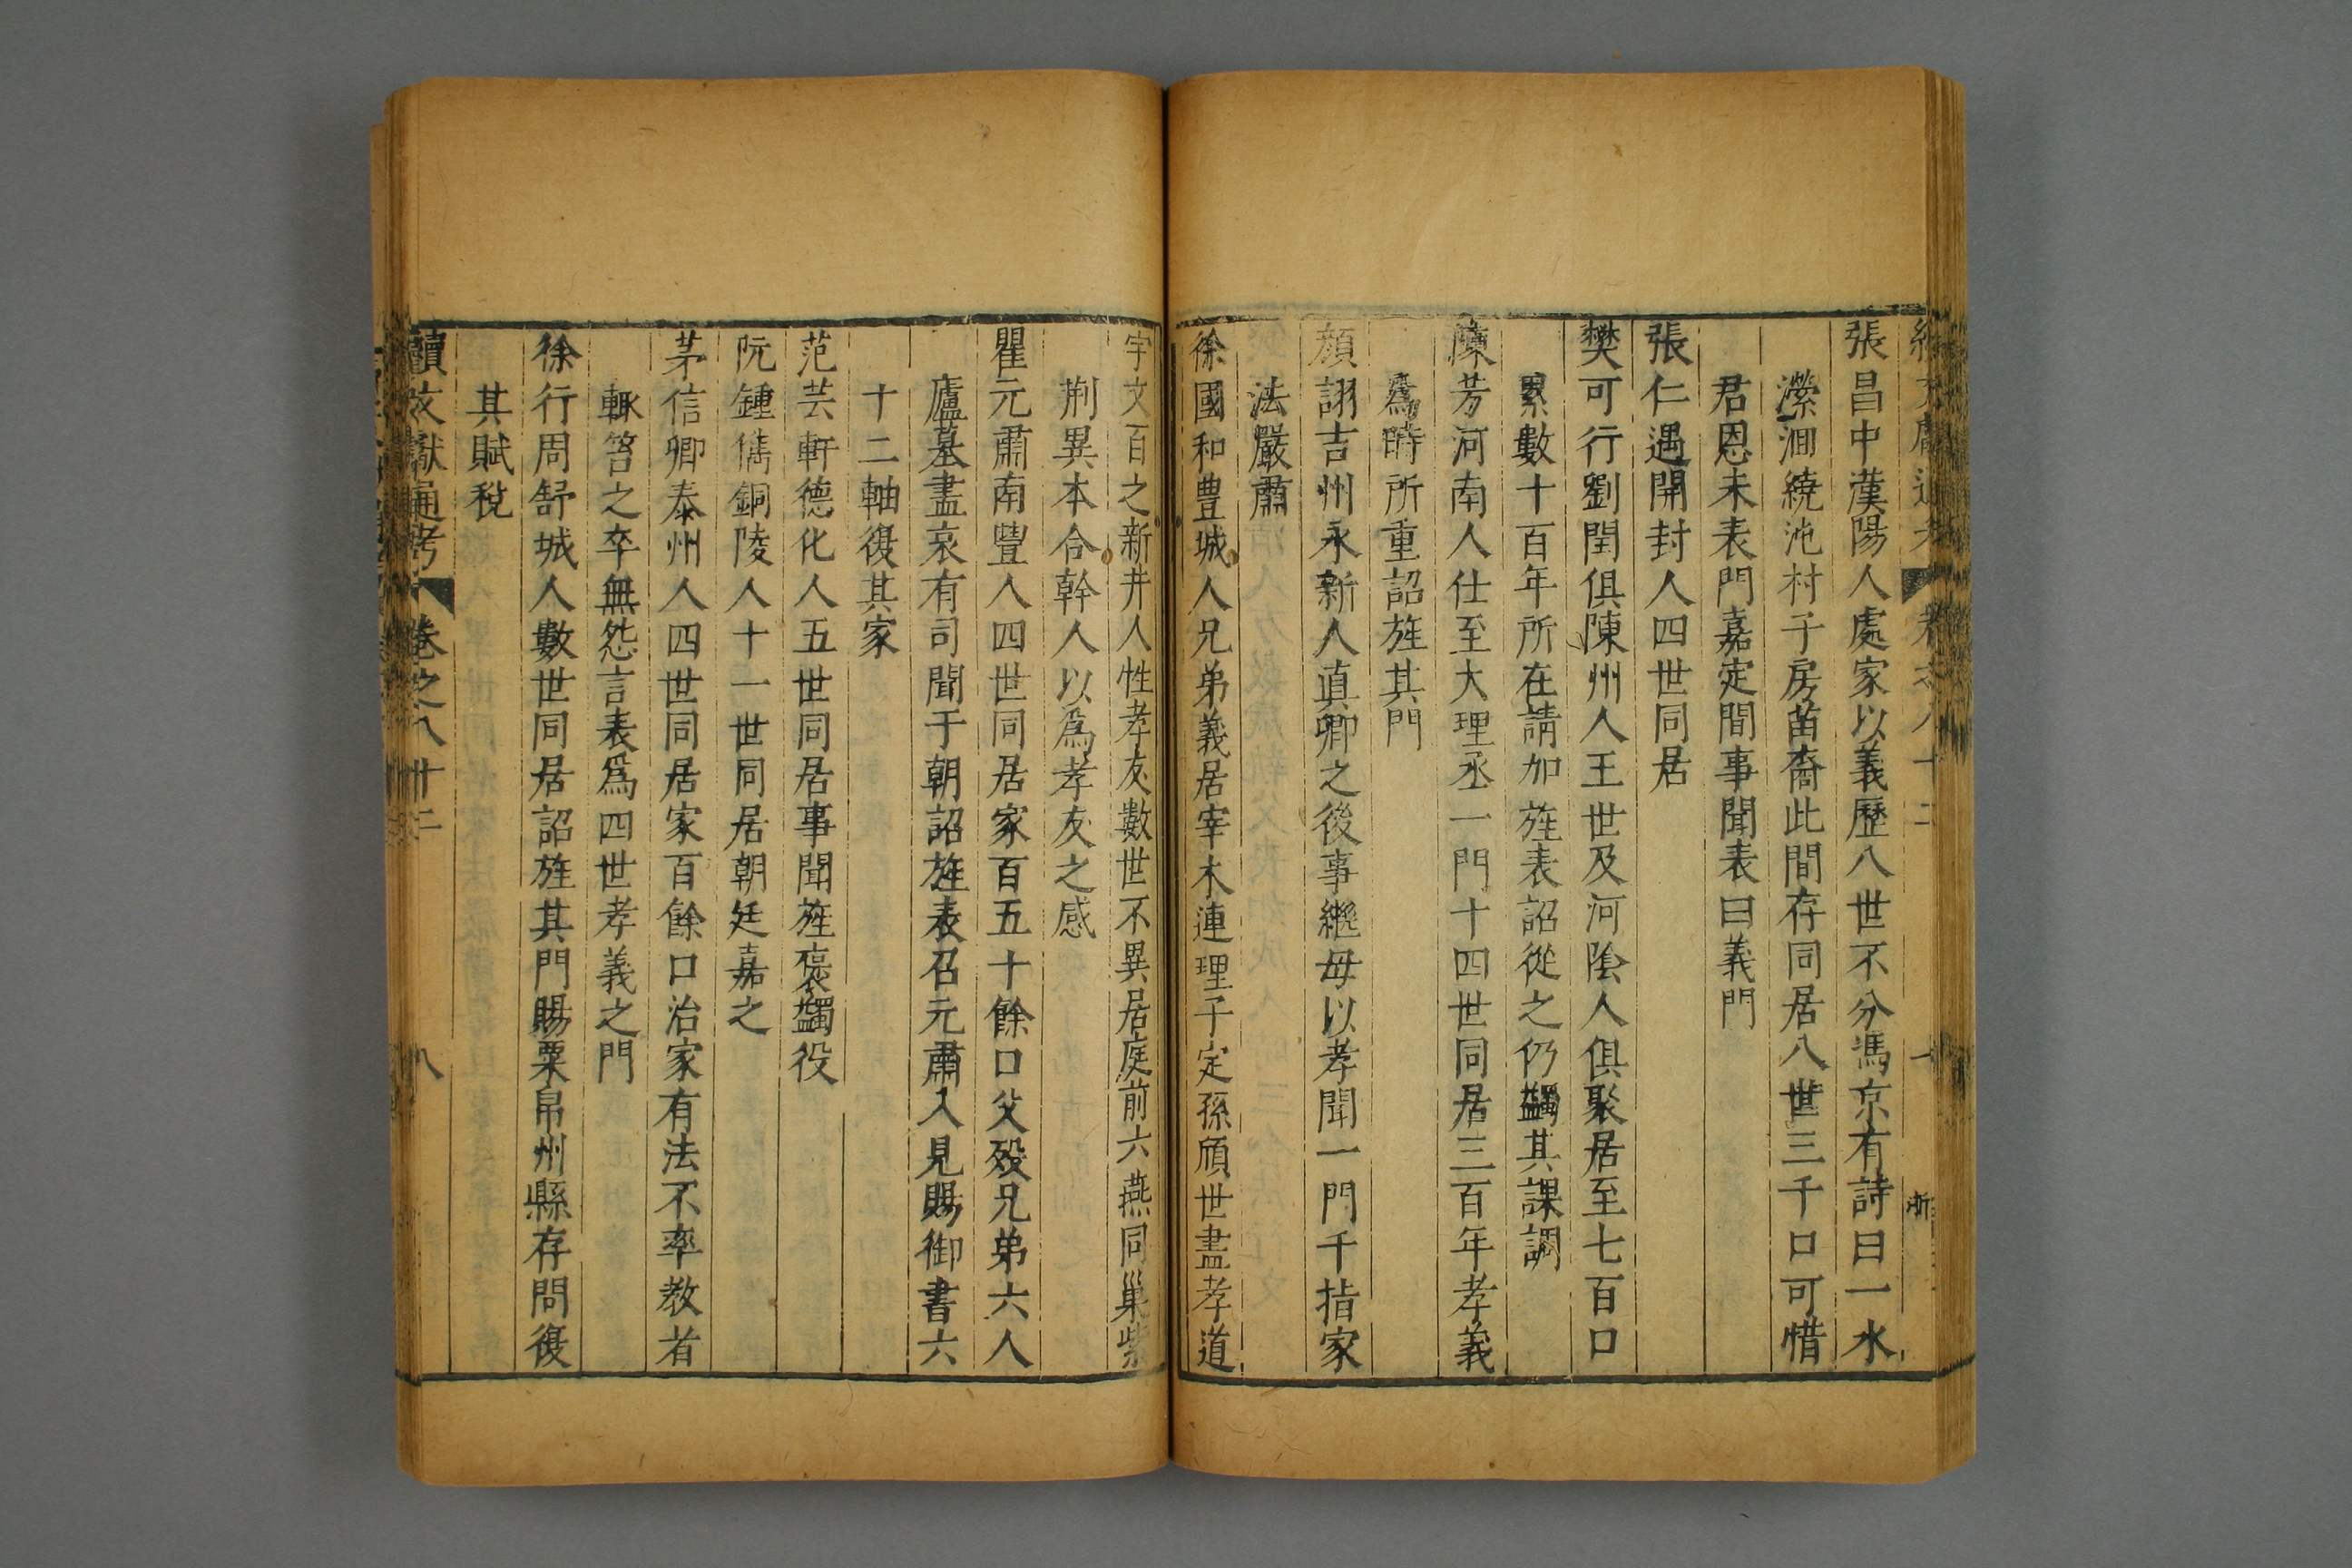 張昌中漢陽人處家以義歷八世不分馮京有詩曰一水
濼洄繞沲村子房苗裔此間存同居八世三千口可惜
君恩未表門嘉定間事聞表曰義門
張仁遇開封人四世同居
樊可行劉閏俱陳州人王世及河陰人俱聚居至七百口
累數十百年所在請加旌表詔從之仍蠲其課調
陳芳河南人仕至大理丞一門十四世同居三百年孝義
爲時所重詔旌其門
顏詡吉州永新人真卿之後事繼母以孝聞一門千指家
法嚴肅
徐國和豊城人兄弟義居宰木連理子定孫頎世盡孝道
宇文百之新井人性孝友數世不異居庭前六燕同巢紫
荊異本合幹人以爲孝友之感
瞿元肅南豐人四世同居家百五十餘口父殁兄弟六人
廬墓盡哀有司聞于朝詔旌表召元肅入見賜御書六
十二軸復其家
范芸軒德化人五世同居事聞旌褒蠲役
阮鍾儁銅陵人十一世同居朝廷嘉之
茅信卿泰州人四世同居家百餘口治家有法不率教者
輒笞之卒無怨言表爲四世孝義之門
徐行周舒城人數世同居詔旌其門賜粟帛州縣存問復
其賦稅
續文獻通考 卷之八十二 八